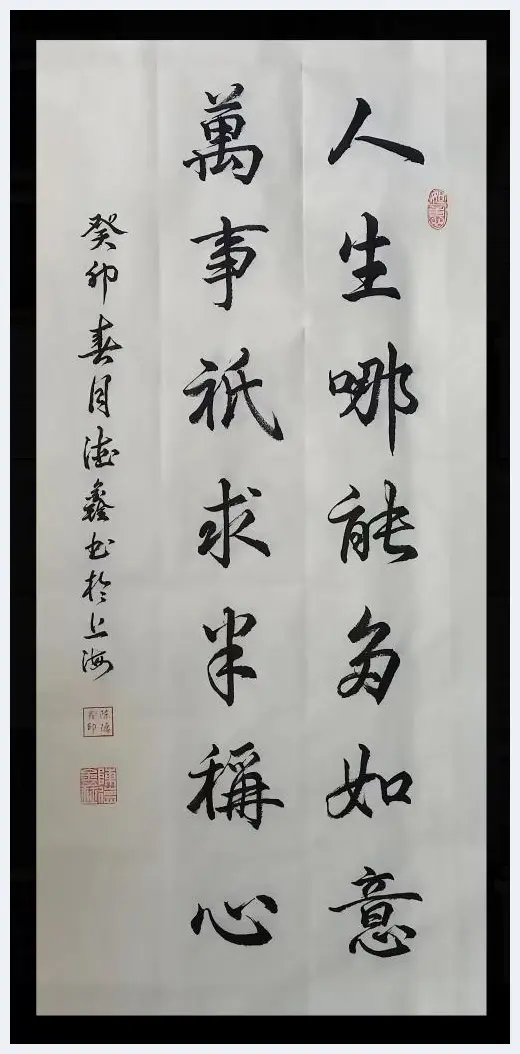 人生哪能多如意
萬事祇求半稱心
癸卯春月德鑫书於上海